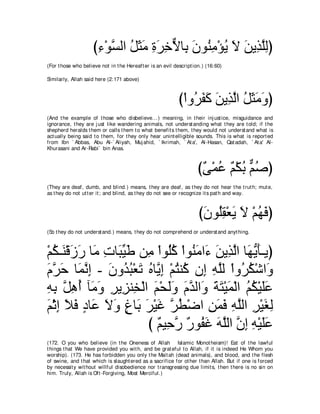 (لِلَّذِينَ لاَ يُؤْمِنُونَ بِالاٌّخِرَةِ مَثَلُ السَّوْءِ)
(For those who believe not in the Hereafter is an evil description.) (16:60)
Similarly, Allah said here (2:171 above)
(وَمَثَلُ الَّذِينَ كَفَرُواْ)
(And the example of those who disbelieve...) meaning, in their injustice, misguidance and
ignorance, they are just like wandering animals, not understanding what they are told; if the
shepherd heralds them or calls them to what benefits them, they would not understand what is
actually being said to them, for they only hear unintelligible sounds. This is what is reported
from Ibn `Abbas, Abu Al-`Aliyah, Mujahid, `Ikrimah, `Ata', Al-Hasan, Qatadah, `Ata' Al-
Khurasani and Ar-Rabi` bin Anas.
(صُمٌّ بُكْمٌ عُمْىٌ)
(They are deaf, dumb, and blind.) means, they are deaf, as they do not hear the truth; mute,
as they do not utter it; and blind, as they do not see or recognize its path and way.
(فَهُمْ لاَ يَعْقِلُونَ)
(So they do not understand.) means, they do not comprehend or understand anything.
(يَـأَيُّهَا الَّذِينَ ءَامَنُواْ كُلُواْ مِن طَيِّبَاتِ مَا رَزَقْنَـكُمْ
وَاشْكُرُواْ لِلَّهِ إِن كُنْتُمْ إِيَّاهُ تَعْبُدُونَ - إِنَّمَا حَرَّمَ
عَلَيْكُمُ الْمَيْتَةَ وَالدَّمَ وَلَحْمَ الْخِنزِيرِ وَمَآ أُهِلَّ بِهِ
لِغَيْرِ اللَّهِ فَمَنِ اضْطُرَّ غَيْرَ بَاغٍ وَلاَ عَادٍ فَلا إِثْمَ
عَلَيْهِ إِنَّ اللَّهَ غَفُورٌ رَّحِيمٌ )
(172. O you who believe (in the Oneness of Allah  Islamic Monotheism)! Eat of the lawful
things that We have provided you with, and be grateful to Allah, if it is indeed He Whom you
worship). (173. He has forbidden you only the Maitah (dead animals), and blood, and the flesh
of swine, and that which is slaughtered as a sacrifice for other than Allah. But if one is forced
by necessity without willful disobedience nor transgressing due limits, then there is no sin on
him. Truly, Allah is Oft-Forgiving, Most Merciful.)